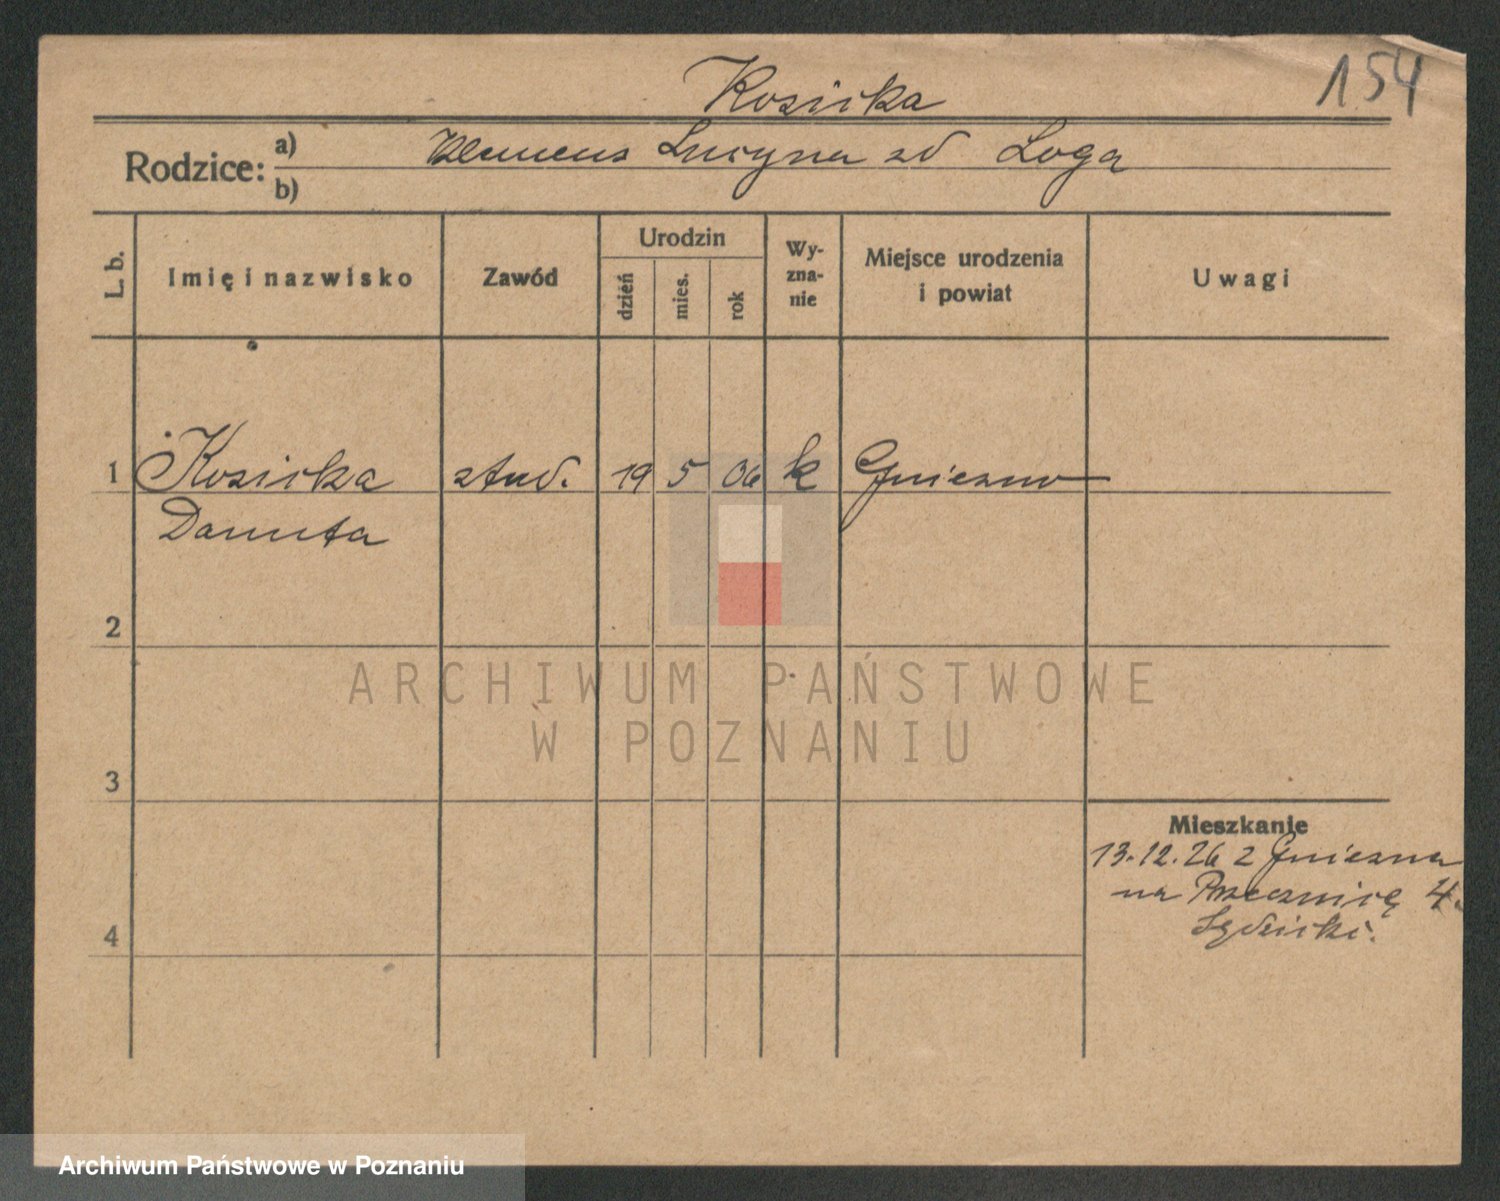 154
Kosicka
Rodzice: a) Klemens Lucyna zd Loga
b)
L. b. Imię i nazwisko Zawód Urodzin dzień mies. rok Wyznanie Miejsce urodzenia i powiat Uwagi
1 Kosicka stud. 19 5 06 k Gniezno
Danuta
2
ARCHIWUM PAŃSTWOWE
W POZNANIU
3
Mieszkanie
13.12.26 z Gniezna
na 4.
4
Archiwum Państwowe w Poznaniu